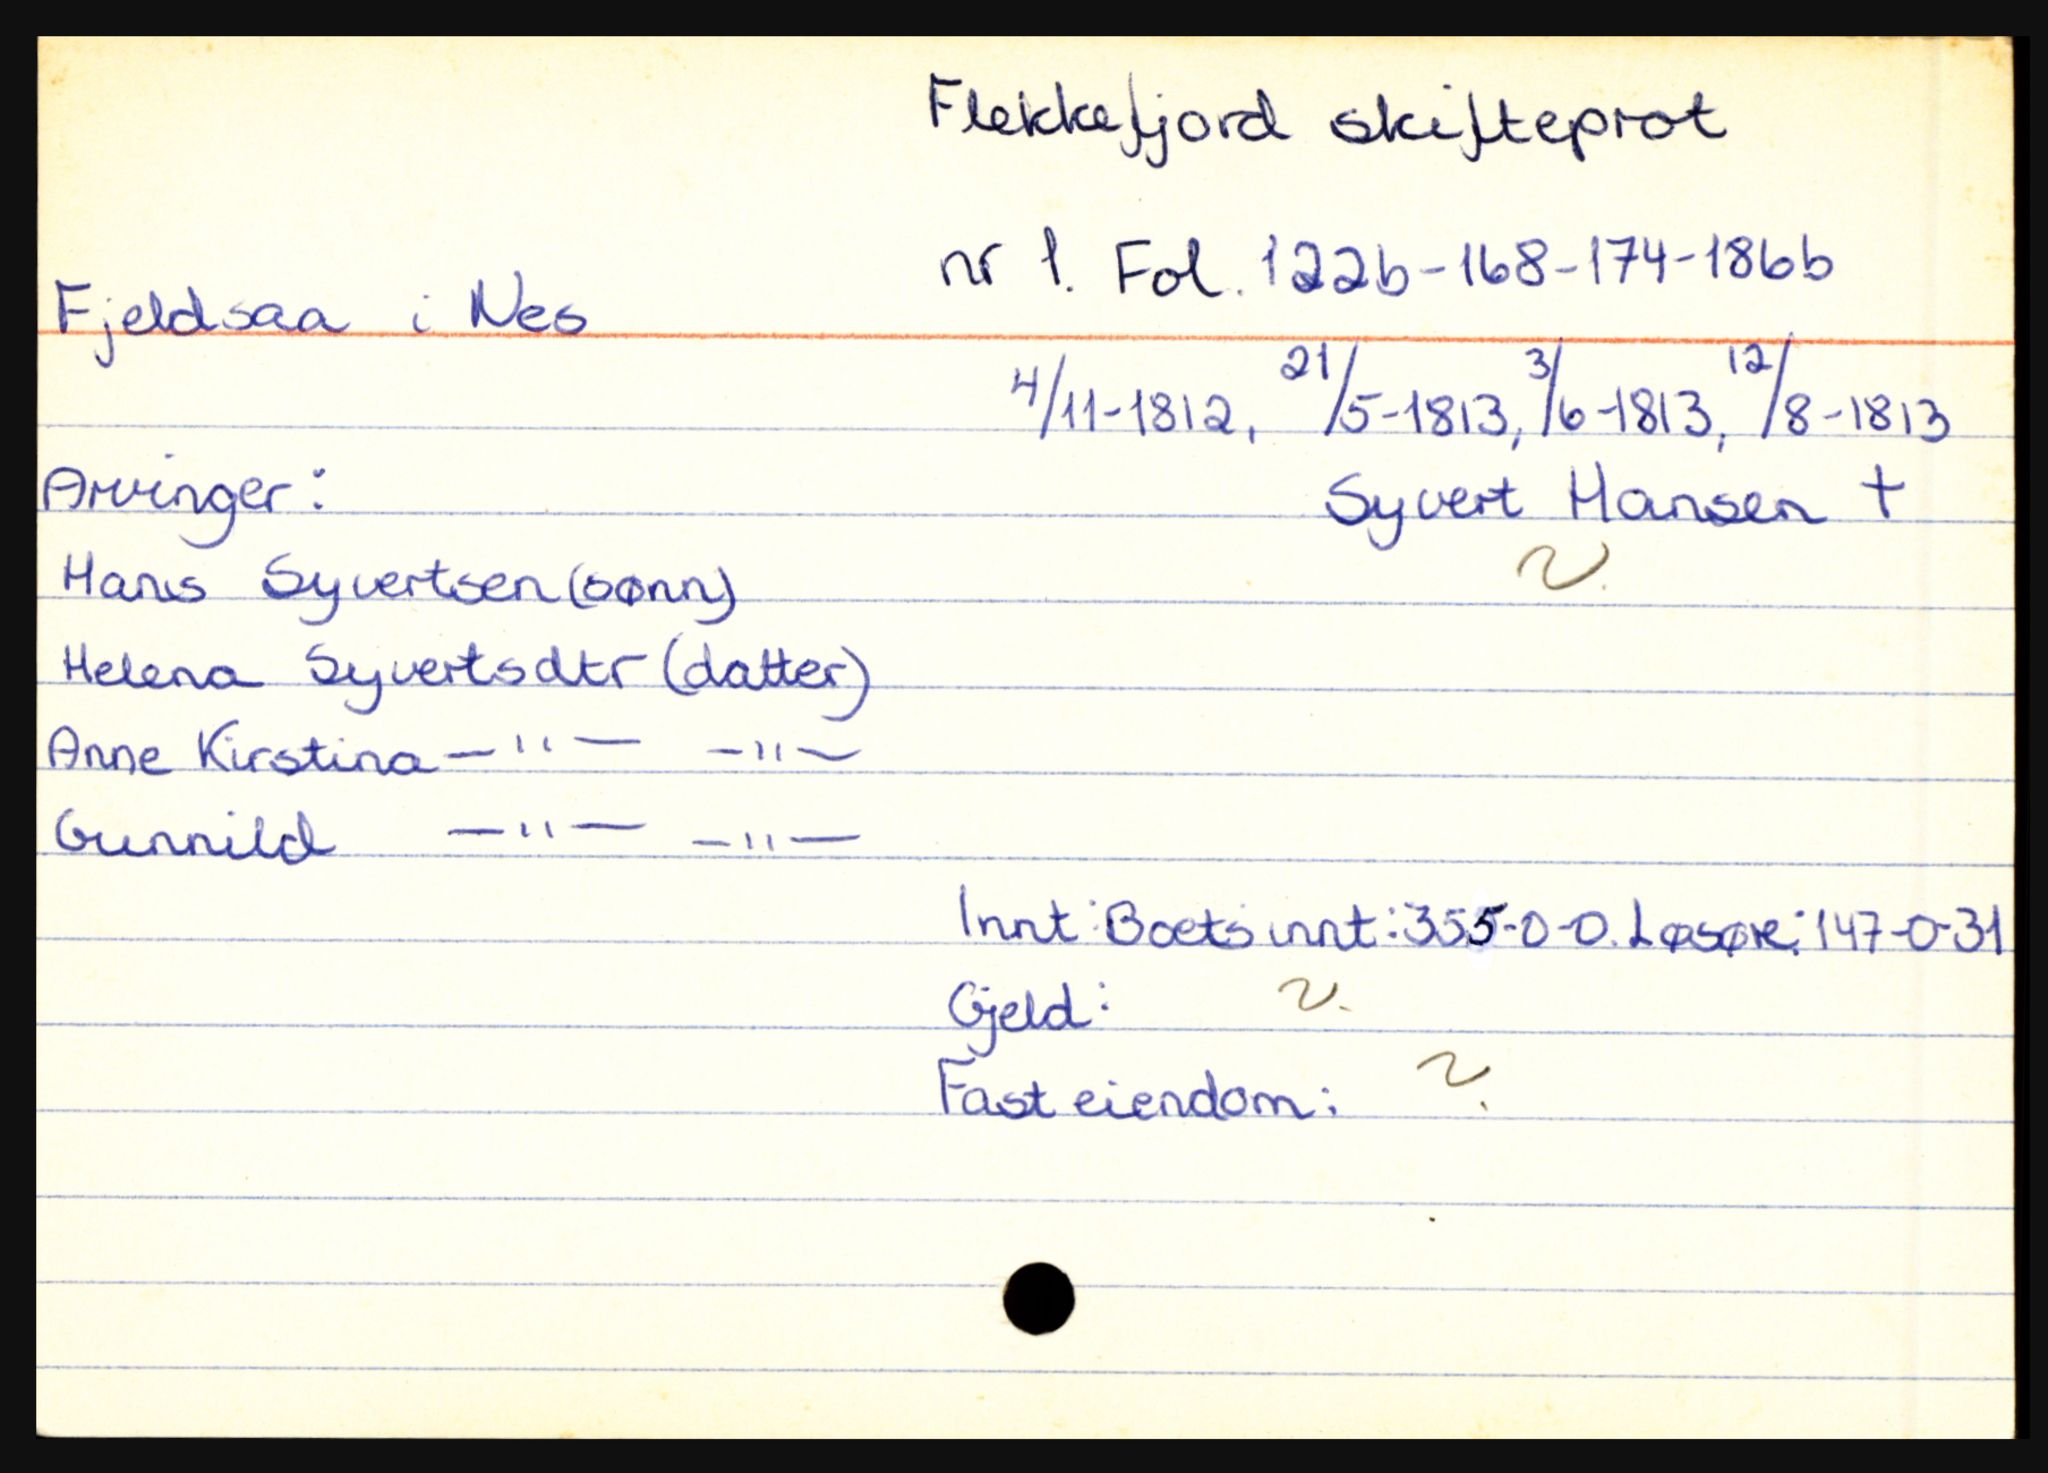 Flekkefjord skifteprot
nr 1. Fol. 122b-168-174-186b
Fjeldsaa i Nes
4/11-1812, 21/5-1813, 3/6-1813, 12/8-1813
Arvinger:
Syvert Hansen †
Hans Syvertsen (sønn)
Helena Syvertsdtr (datter)
Anne Kirstina —"— —"—
Gunnild —"— —"—
Innt: Boets innt: 355-0-0. Løsøre: 147-0-31
Gjeld:
Fast eiendom: